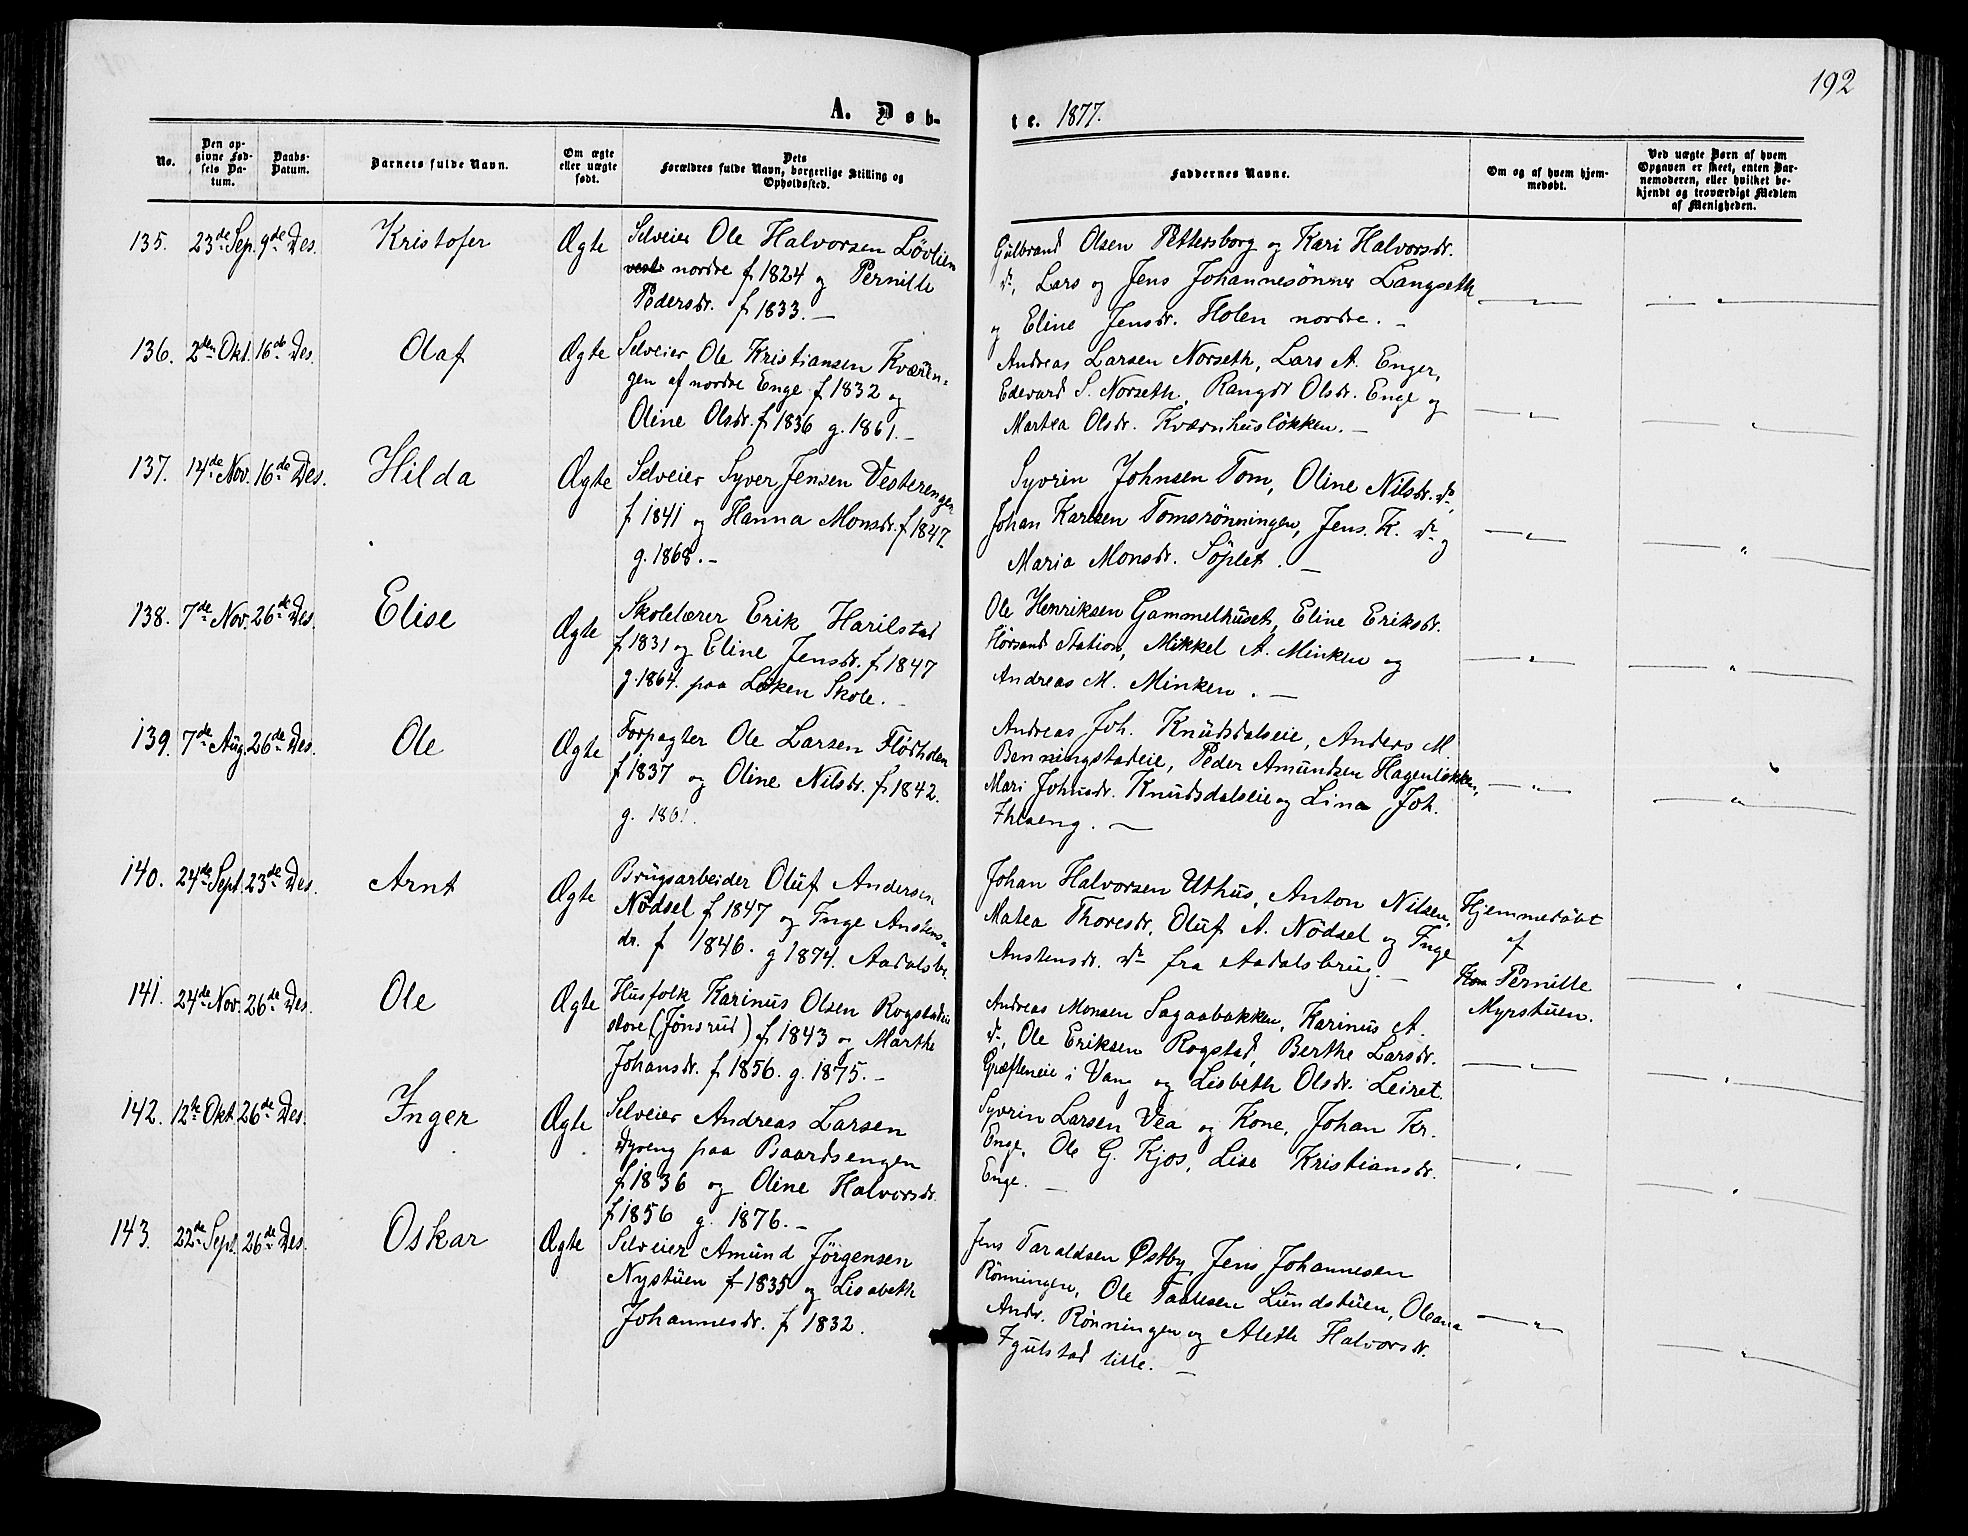 192
A. Døb-
te. 1877.
No.
Den op-
givne Fød-
sels Da-
tum.
Daabs-
Datum.
Barnets fulde Navn.
Om ægte
eller uægte
født.
Dets
Forældres fulde Navn, borgerlige Stilling og
Opholdssted.
Faddernes Navne.
Om og af hvem hjem-
medøbt.
Ved uægte Børn af hvem
Opgaven er skeet, enten Bar-
nemoderen, eller hvilket be-
kjendt og troværdigt Medlem
af Menigheden.
135. 23de Sep. 9de Des. Kristofer Ægte
Selveier Ole Halvorsen Løvlien
nordre f 1824 og Pernille
Pedersdr. f 1833. —
Gulbrand Olsen Pettersborg og Kari Halvorsdr.
do, Lars og Jens Johannesønner Langseth
og Eline Jensdr. Holen nordre. -
136. 2den Okt. 16de Des. Olaf Ægte
Selveier Ole Kristiansen Kværn-
gen af nordre Enge f 1832 og
Oline Olsdr. f 1836 g. 1861. -
Andreas Larsen Norseth, Lars A. Enger,
Edevard S. Norseth, Rangdi Olsdr. Enge og
Martea Olsdr. Kværnhusløkken. -
137. 14de Nov. 16de Des. Hilda Ægte
Selveier Syver Jensen Vesterengen
f 1841 og Hanna Monsdr. f 1847.
g. 1868. -
Syvrin Johnsen Tom, Oline Nilsdr. do,
Johan Karlsen Tomsrönningen, Jens. K. do og
Maria Monsdr. Söplet. —
138. 7de Nov. 26de Des. Elise Ægte
Skolelærer Erik Harilstad
f 1831 og Eline Jensdr. f 1847
g. 1864. paa Løken Skole. -
Ole Henriksen Gammelhuset, Eline Eriksdr.
Hörsand Station, Mikkel A. Minken og
Andreas M. Minken. —
139. 7de Aug. 26de Des. Ole Ægte
Forpagter Ole Larsen Flödholen
f 1837 og Oline Nilsdr. f 1842.
g. 1861.
Andreas Joh. Knudsdalseie, Anders M
Benningstadeie, Peder Amundsen Hagenløkken,
Mari Johnsdr. Knudsdalseie og Lina Joh.
140. 24de Sept. 23de Des. Arnt Ægte
Brugsarbeider Oluf Andersen
Nödsel f 1847 og Inge Anstens-
dr. f 1846. g 1874. Aadalsbr.
Johan Halvorsen Uthus, Anton Nilsen,
Matea Thoresdr, Oluf A. Nödsel og Inge
Anstensdr. do fra Aadalsbrug. —
Hjemmedöbt
af
Kon Pernille
Myrstuen.
141. 24de Nov. 26de Des. Ole Ægte
Husfolk Karinus Olsen Rogstadeie
store (Jönsrud) f 1843 og Marthe
Johansdr. f 1856. g. 1875. -
Andreas Monsen Sagaabakken, Karinus A.
do, Ole Eriksen Rogstad, Berthe Larsdr.
Græfteneie i Vang og Lisbeth Olsdr. Leiret.
142. 12te Okt. 26de Des. Inger Ægte
Selveier Andreas Larsen
Dyreng paa Baardsengen
f 1836 og Oline Halvorsdr.
f 1856 g. 1876. -
Syvrin Larsen Vea og Kone, Johan Kr.
Enge, Ole G. Kjos, Lise Kristiansdr.
Enge. —
143. 22de Sept. 26de Des. Oskar Ægte
Selveier Amund Jörgensen
Nystuen f 1835 og Lisabeth
Johannesdr. f 1832.
Jens Taraldsen Østby, Jens Johannesen
Rönningen, Ole Paalesen Lundstuen, Oleana
Andr. Rönningen og Aleth Halvorsdr.
Igulstad lille. —